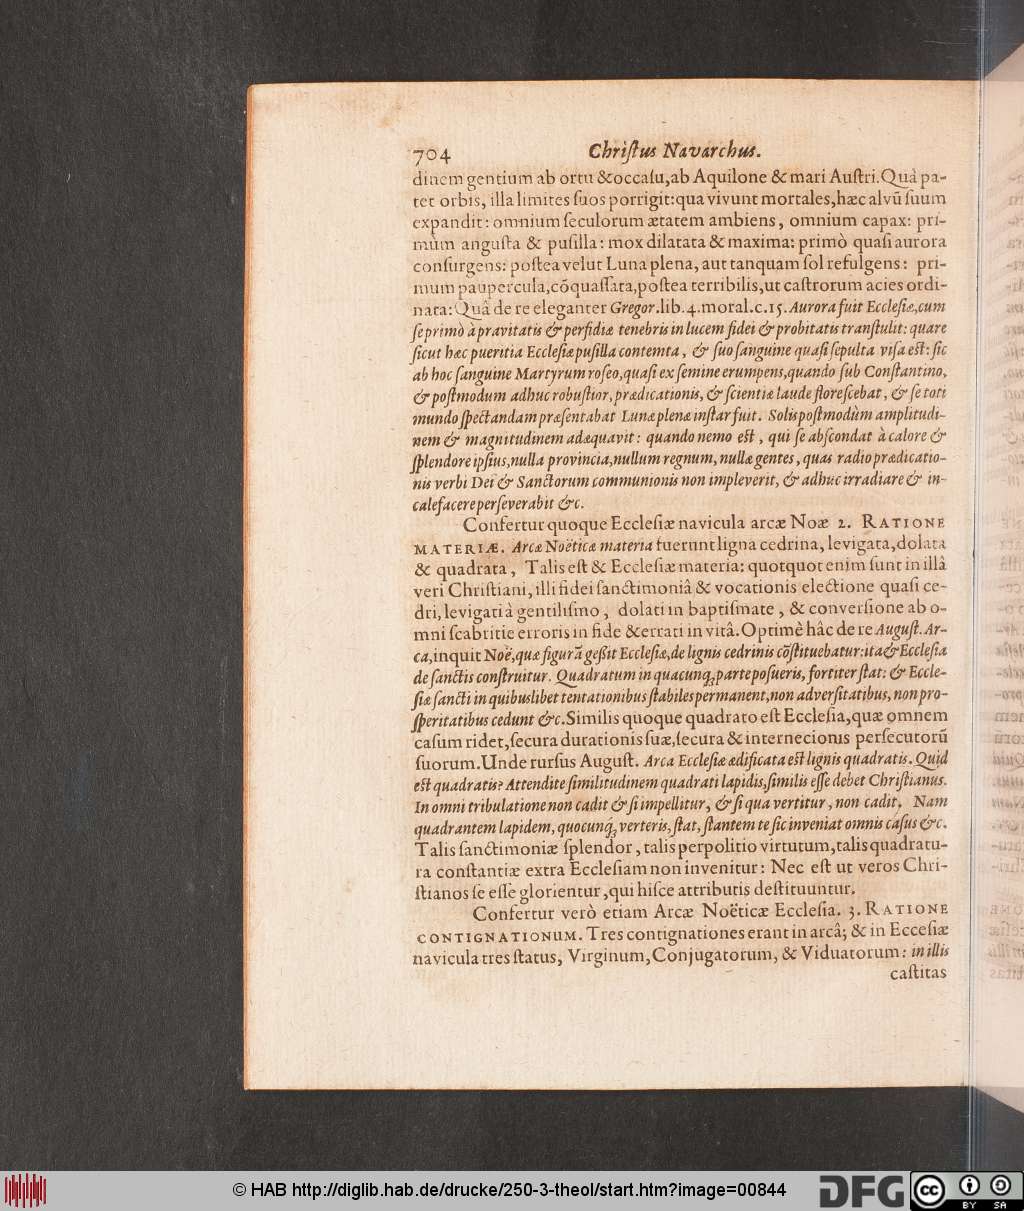 704 Chriſtus Navarchus.
dinem gentium ab ortu & occaſu, ab Aquilone & mari Auſtri. Quà pa-
tet orbis, illa limites ſuos porrigit: qua vivunt mortales, hæc alvū ſuum
expandit: omnium ſeculorum ætatem ambiens, omnium capax: pri-
mùm anguſta & puſilla: mox dilatata & maxima: primò quaſi aurora
conſurgens: poſtea velut Luna plena, aut tanquam ſol refulgens: pri-
mum paupercula, cōquaſſata, poſtea terribilis, ut caſtrorum acies ordi-
nata: Quâ de re eleganter Gregor. lib. 4. moral. c. 15. Aurora fuit Eccleſiæ, cum
ſe primò à pravitatis & perfidiæ tenebris in lucem fidei & probitatis tranſtulit: quare
ſicut hæc pueritia Eccleſiæ puſilla contemta, & ſuo ſanguine quaſi ſepulta viſa eſt: ſic
ab hoc ſanguine Martyrum roſeo, quaſi ex ſemine erumpens, quando ſub Conſtantino,
& poſtmodum adhuc robuſtior, prædicationis, & ſcientiæ laude floreſcebat, & ſe toti
mundo ſpectandam præſentabat Lunæ plenæ inſtar fuit. Solis poſtmodùm amplitudi-
nem & magnitudinem adæquavit: quando nemo eſt, qui ſe abſcondat à calore &
ſplendore ipſius, nulla provincia, nullum regnum, nullæ gentes, quas radio prædicatio-
nis verbi Dei & Sanctorum communionis non impleverit, & adhuc irradiare & in-
calefacere perſeverabit &c.
Confertur quoque Eccleſiæ navicula arcæ Noæ 2. RATIONE
MATERIÆ. Arcæ Noëticæ materia fuerunt ligna cedrina, levigata, dolata
& quadrata, Talis eſt & Eccleſiæ materia: quotquot enim ſunt in illâ
veri Chriſtiani, illi fidei ſanctimoniâ & vocationis electione quaſi ce-
dri, levigati à gentiliſmo, dolati in baptiſmate, & converſione ab o-
mni ſcabritie erroris in fide & errati in vitâ. Optimè hâc de re Auguſt. Ar-
ca, inquit Noë, quæ figurā geßit Eccleſiæ, de lignis cedrinis cōſtituebatur: ita & Eccleſia
de ſanctis conſtruitur. Quadratum in quacunq; parte poſueris, fortiter ſtat: & Eccle-
ſiæ ſancti in quibuslibet tentationibus ſtabiles permanent, non adverſitatibus, non pro-
ſperitatibus cedunt &c. Similis quoque quadrato eſt Eccleſia, quæ omnem
caſum ridet, ſecura durationis ſuæ, ſecura & internecionis perſecutorū
ſuorum. Unde rurſus Auguſt. Arca Eccleſiæ ædificata eſt lignis quadratis. Quid
eſt quadratis? Attendite ſimilitudinem quadrati lapidis, ſimilis eſſe debet Chriſtianus.
In omni tribulatione non cadit & ſi impellitur, & ſi qua vertitur, non cadit. Nam
quadrantem lapidem, quocunq́; verteris, ſtat, ſtantem te ſic inveniat omnis caſus &c.
Talis ſanctimoniæ ſplendor, talis perpolitio virtutum, talis quadratu-
ra conſtantiæ extra Eccleſiam non invenitur: Nec eſt ut veros Chri-
ſtianos ſe eſſe glorientur, qui hiſce attributis deſtituuntur.
Confertur verò etiam Arcæ Noëticæ Eccleſia. 3. RATIONE
CONTIGNATIONUM. Tres contignationes erant in arcâ; & in Ecceſiæ
navicula tres ſtatus, Virginum, Conjugatorum, & Viduatorum: in illis
caſtitas
© HAB http://diglib.hab.de/drucke/250-3-theol/start.htm?image=00844
DFG
cc BY SA